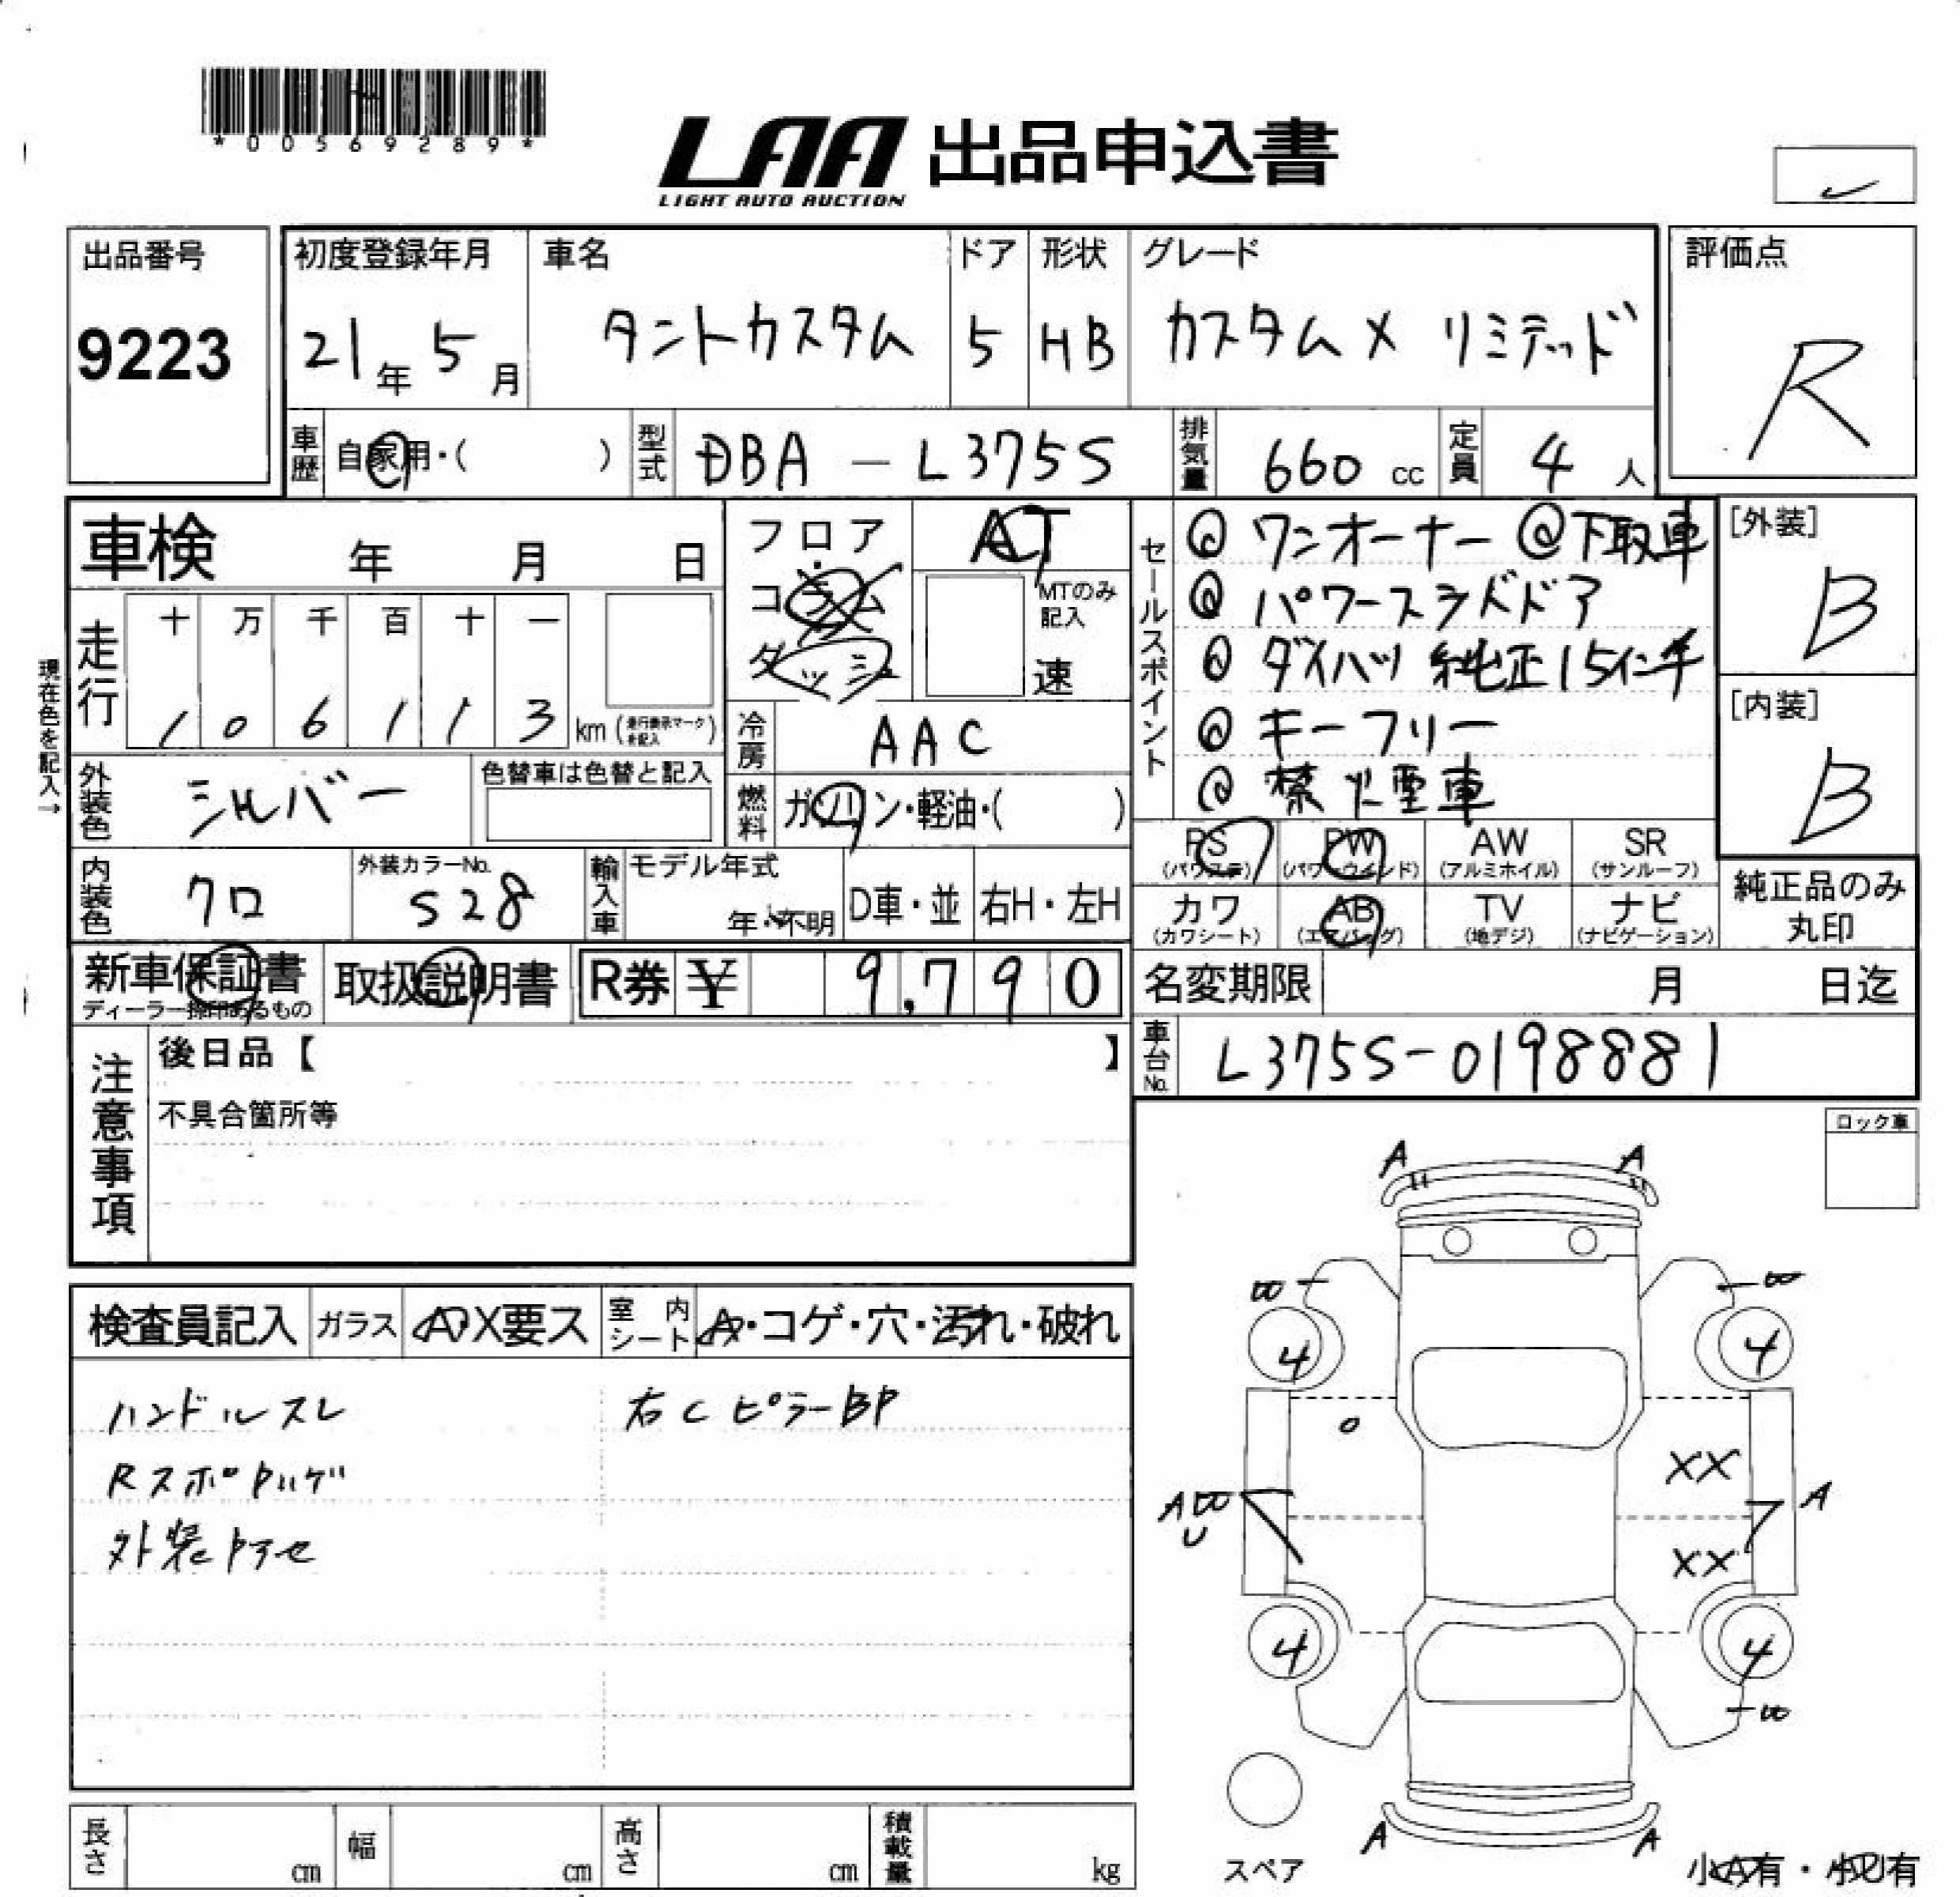 *00569289*
LAA 出品申込書
LIGHT AUTO AUCTION
出品番号
9223
初度登録年月
21年 5月
車名
タントカスタム
ドア
5
形状
HB
グレード
カスタムX リミテッド
評価点
R
車歴 自家用・( )
型式 DBA - L375S
排気量 660 cc
定員 4 人
車検 年 月 日
フロア
コラム
ダッシュ
AT
MTのみ記入
速
セールスポイント
@ ワンオーナー @下取車
@ パワースライドドア
@ ダイハツ 純正15インチ
@ キーフリー
@ 禁煙車
[外装]
B
[内装]
B
現在色を記入→
走行
十 万 千 百 十 一
1 0 6 1 1 3 km (走行表示マークを記入)
冷房 AAC
外装色 シルバー
色替車は色替と記入
燃料 ガソリン・軽油・( )
内装色 クロ
外装カラーNo.
S28
輸入車 モデル年式
年・不明
D車・並
右H・左H
PS (パワステ)
PW (パワーウインド)
AW (アルミホイル)
SR (サンルーフ)
カワ (カワシート)
AB (エアバッグ)
TV (地デジ)
ナビ (ナビゲーション)
純正品のみ丸印
新車保証書
ディーラー捺印あるもの
取扱説明書
R券 ¥ 9,790
名変期限 月 日迄
車台No. L375S-0198881
注意事項
後日品【 】
不具合箇所等
ロック車
検査員記入
ガラス A・X要ス
室内シート A・コゲ・穴・汚れ・破れ
ハンドルスレ
右Cピラー BP
Rスポ トハゲ
外装トアセ
A A
4 4
XX
A
U
A
XX
4 4
A A
スペア
小A有・小U有
長さ cm
幅 cm
高さ cm
積載量 kg